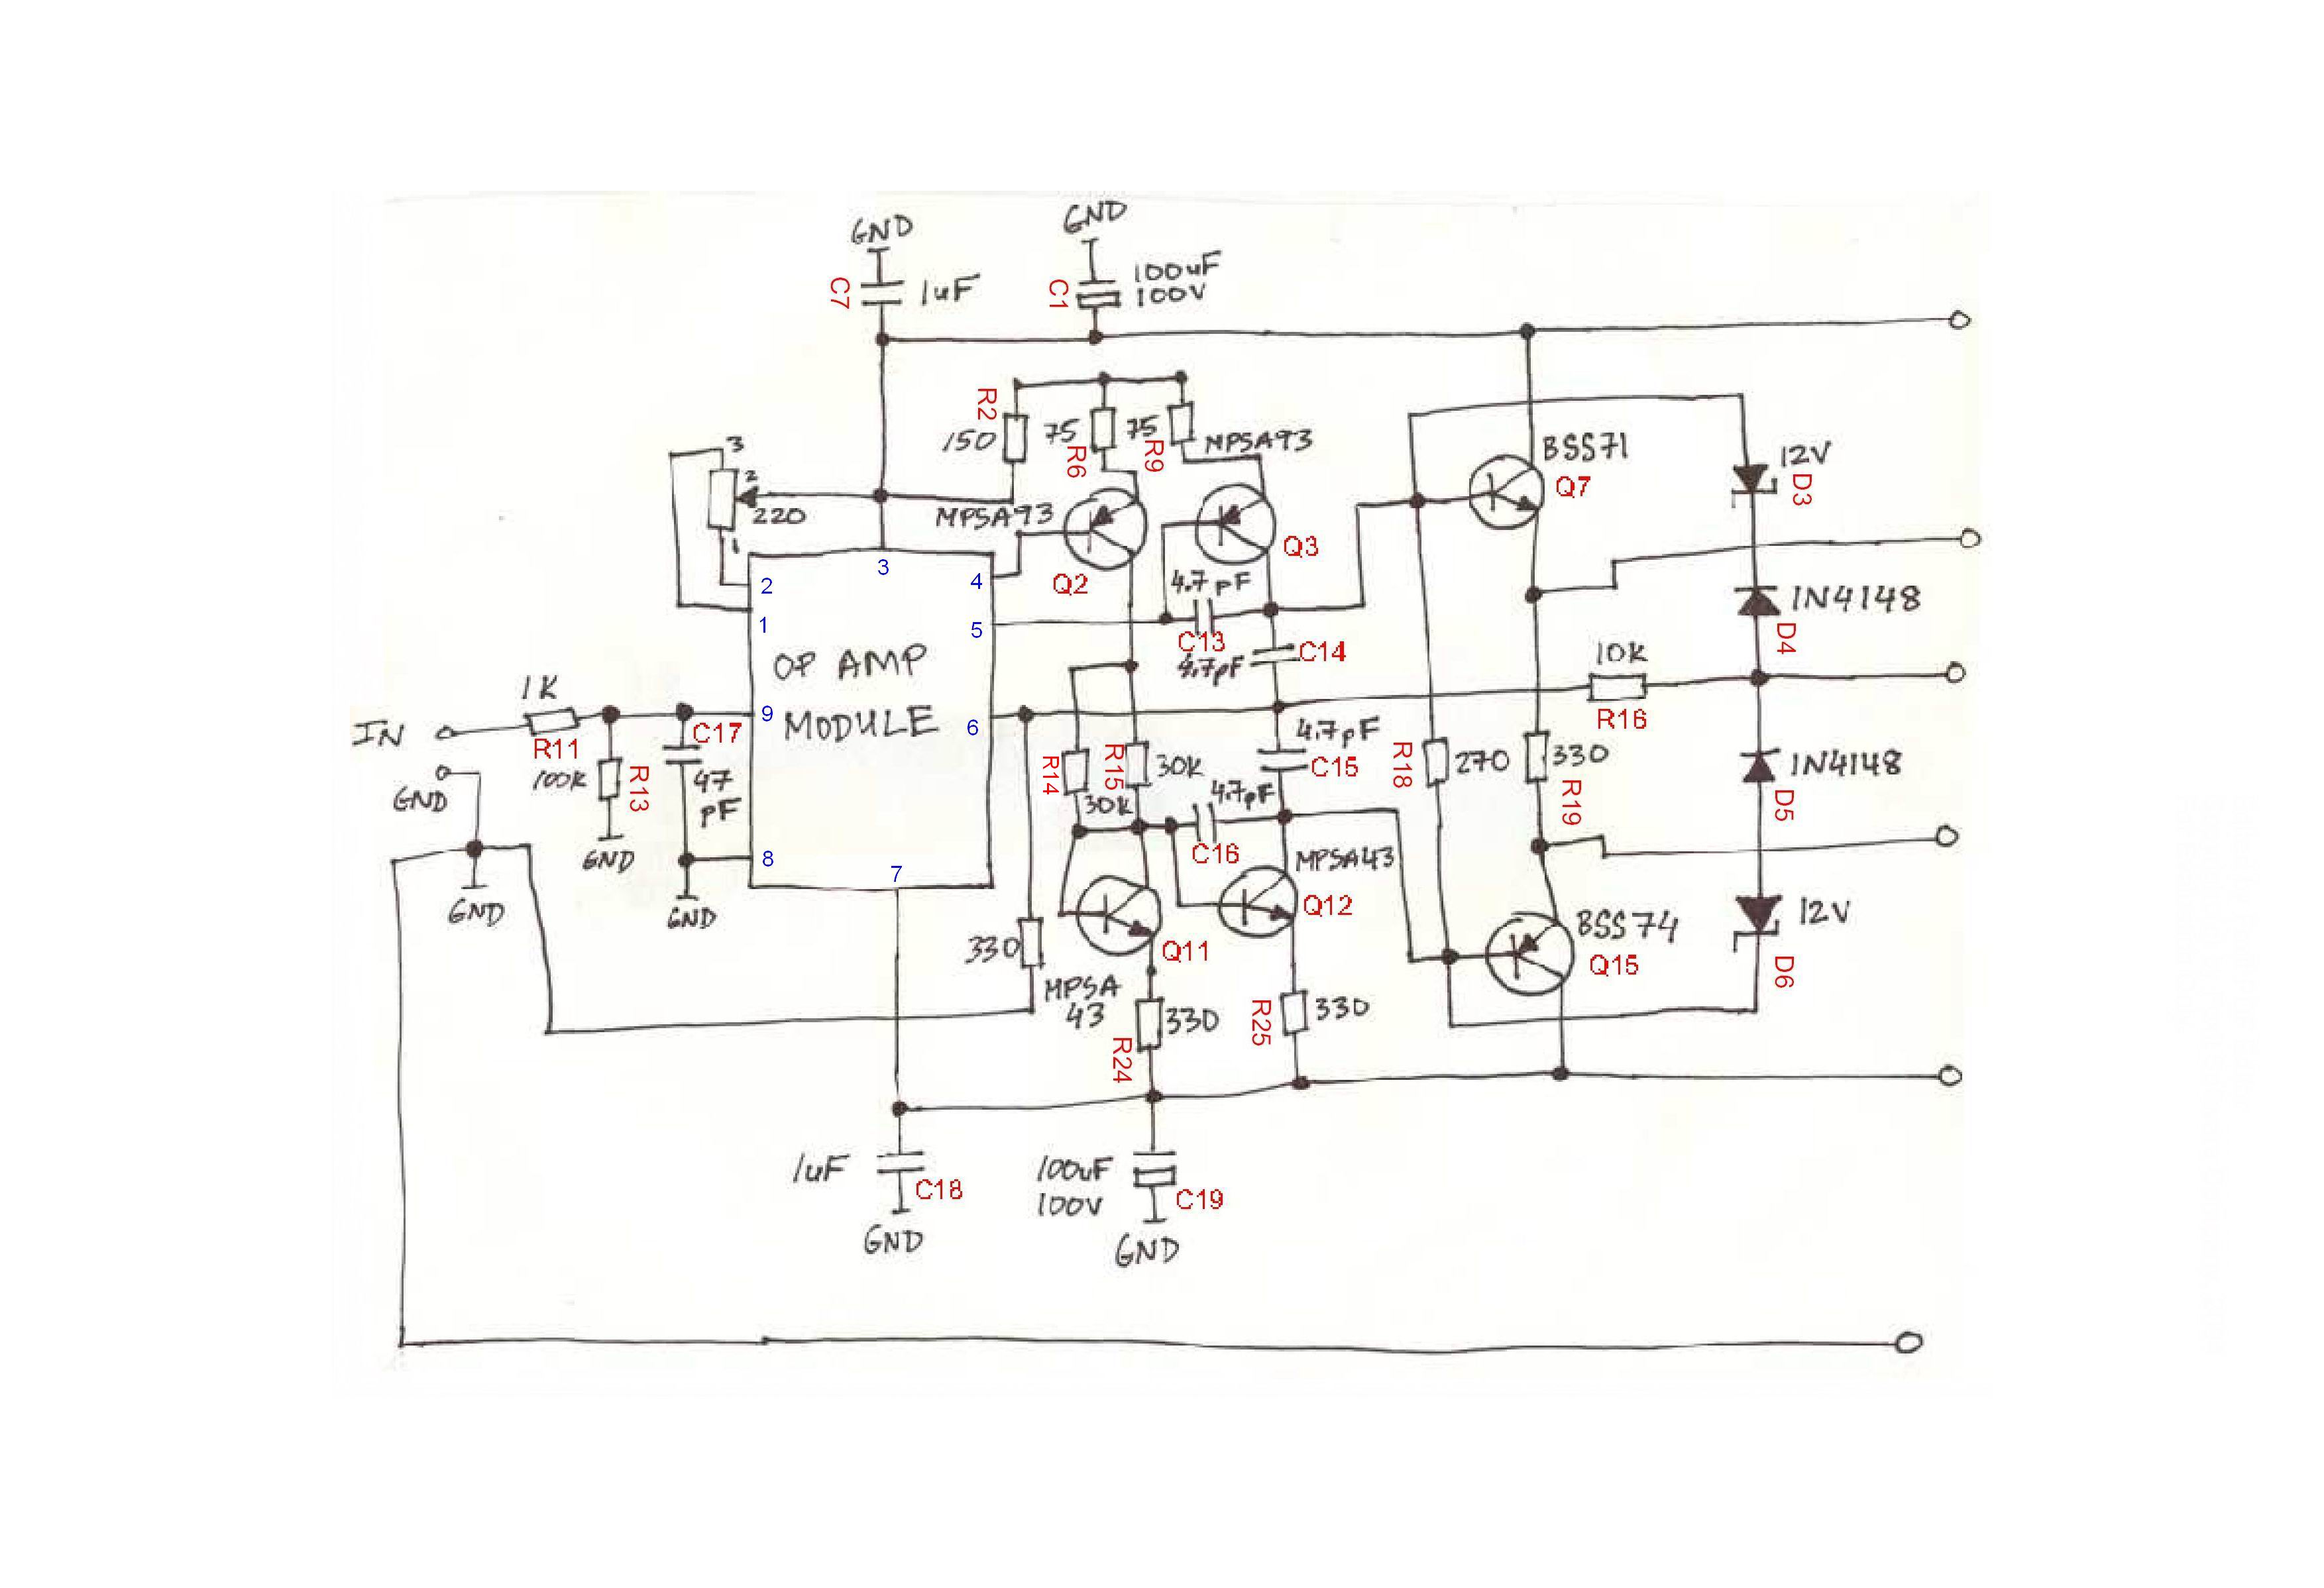 GND
GND
C7
1uF
C1
100uF
100V
R2
150
75
R6
75
R9
MPSA93
BSS71
Q7
12V
D3
3
2
220
1
MPSA93
Q2
Q3
3
2
1
4
5
4.7pF
C13
4.7pF
C14
1N4148
D4
10K
R16
OP AMP
MODULE
9
6
8
7
IN
1K
R11
100K
R13
GND
C17
47
pF
GND
GND
GND
R14
30K
R15
30K
4.7pF
C15
4.7pF
C16
R18
270
330
R19
1N4148
D5
MPSA43
Q12
BSS74
Q15
12V
D6
330
MPSA
43
Q11
330
R24
R25
330
1uF
C18
GND
100uF
100V
C19
GND